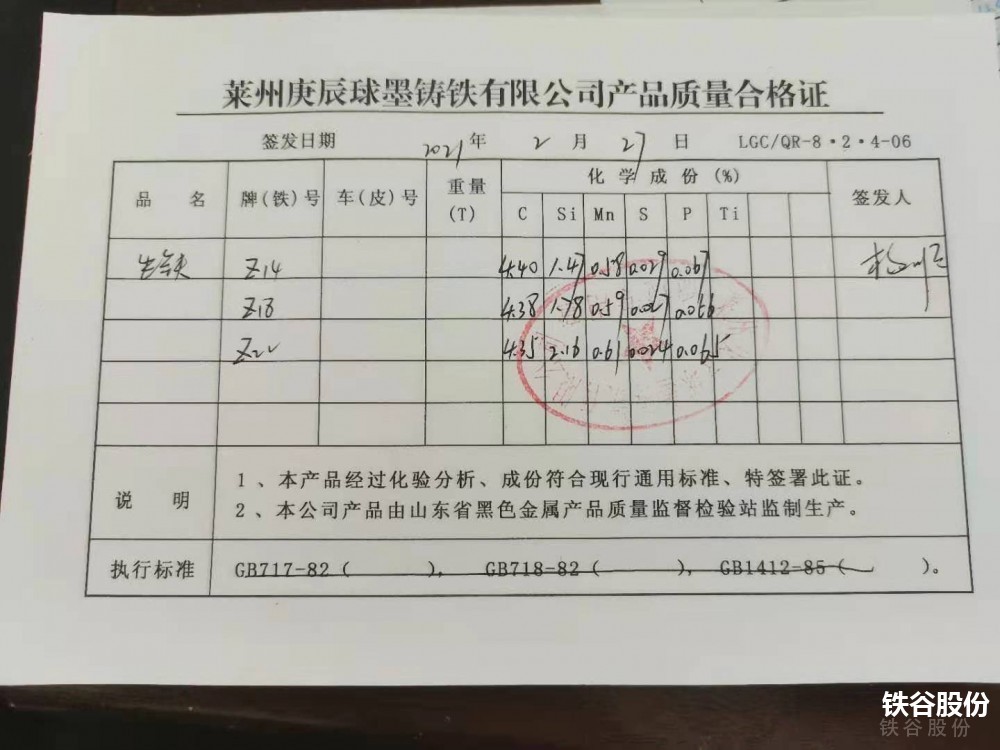 莱州庚辰球墨铸铁有限公司产品质量合格证
签发日期 2021年 2 月 27 日 LGC/QR-8·2·4-06
品 名 牌(铁)号 车(皮)号 重量(T) 化学成份(%) 签发人
C Si Mn S P Ti
生铁 Z14 4.40 1.47 0.58 0.029 0.067
Z18 4.38 1.78 0.59 0.027 0.066
Z22 4.35 2.16 0.61 0.024 0.065
说 明
1、本产品经过化验分析、成份符合现行通用标准、特签署此证。
2、本公司产品由山东省黑色金属产品质量监督检验站监制生产。
执行标准 GB717-82( ), GB718-82( ), GB1412-85( )。
铁谷股份
铁谷股份